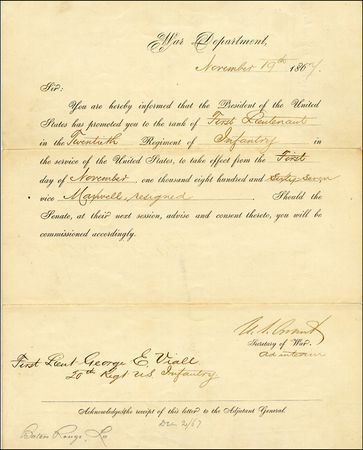 War Department,
November 19th 1867.
Sir:
You are hereby informed that the President of the United
States has promoted you to the rank of First Lieutenant
in the Twentieth Regiment of Infantry in
the service of the United States, to take effect from the First
day of November one thousand eight hundred and Sixty Seven
vice Maxwell, resigned. Should the
Senate, at their next session, advise and consent thereto, you will be
commissioned accordingly.
U. S. Grant
Secretary of War
ad interim
First Lieut George E. Viall
20th Regt US Infantry
Acknowledge the receipt of this letter to the Adjutant General.
Dec 2/67
Baton Rouge, La